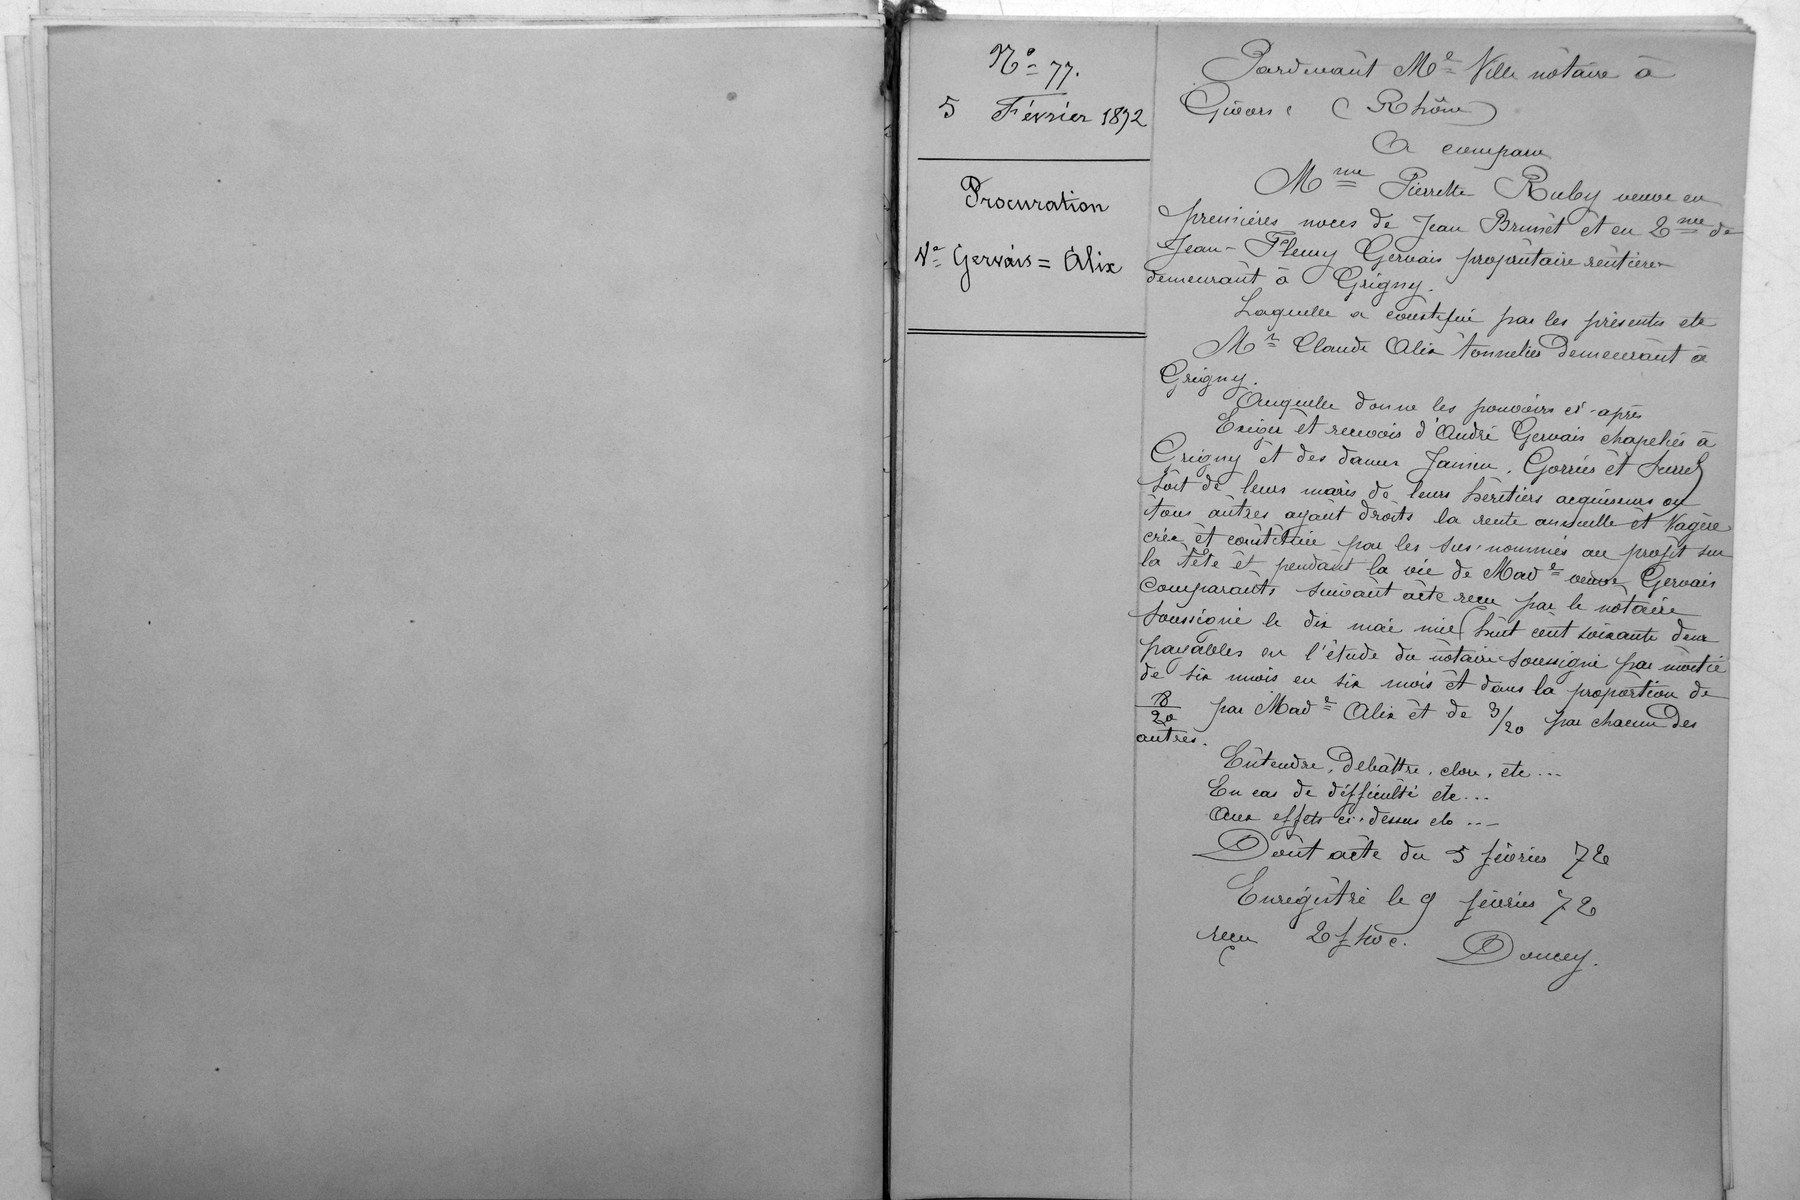 N° 77.
5 Février 1872
Procuration
Ve Gervais = Alix
Pardevant Me Ville nôtaire à
Givors (Rhône)
A comparu
Mme Pierrette Ruby veuve en
premières noces de Jean Brunet et en 2me de
Jean-Fleury Gervais propriétaire rentière
demeurant à Grigny.
Laquelle a constitué par les présentes etc
Mr Claude Alix tonnelier demeurant à
Grigny.
Auquelle donne les pouvoirs ci-après
Exiger et recevoir d'André Gervais chapelier à
Grigny et des dames Janin, Gorriès et
soit de leurs maris de leurs héritiers acquéreurs ou
tous autres ayant droits la rente annuelle et Viagère
crée et constituée par les sus-nommés au profit sur
la tête et pendant la vie de Made veuve Gervais
comparante suivant acte recu par le nôtaire
soussigné le dix mai mil huit cent soixante deux
payables en l'étude du nôtaire soussigné par moitié
de six mois en six mois et dans la proportion de
8/20 par Made Alix et de 3/20 par chacun des
autres.
Entendre, débattre, clore, etc...
En cas de difficulté etc...
Aux effets ci-dessus etc...
Dont acte du 5 février 72
Enregistré le 9 février 72
reçu 2f c. Doncey.